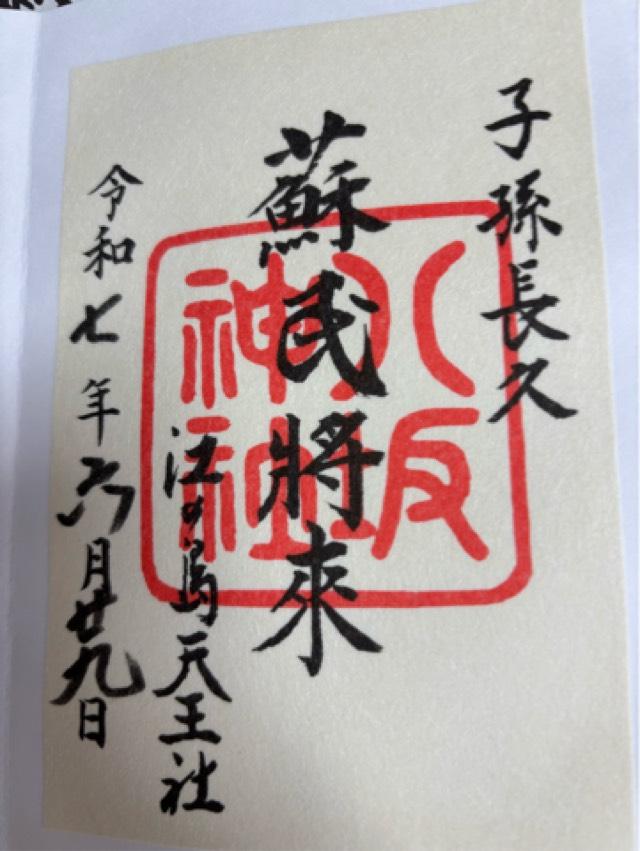 子孫長久
蘇民將來
江の島天王社
令和七年六月廿九日
八坂
神社